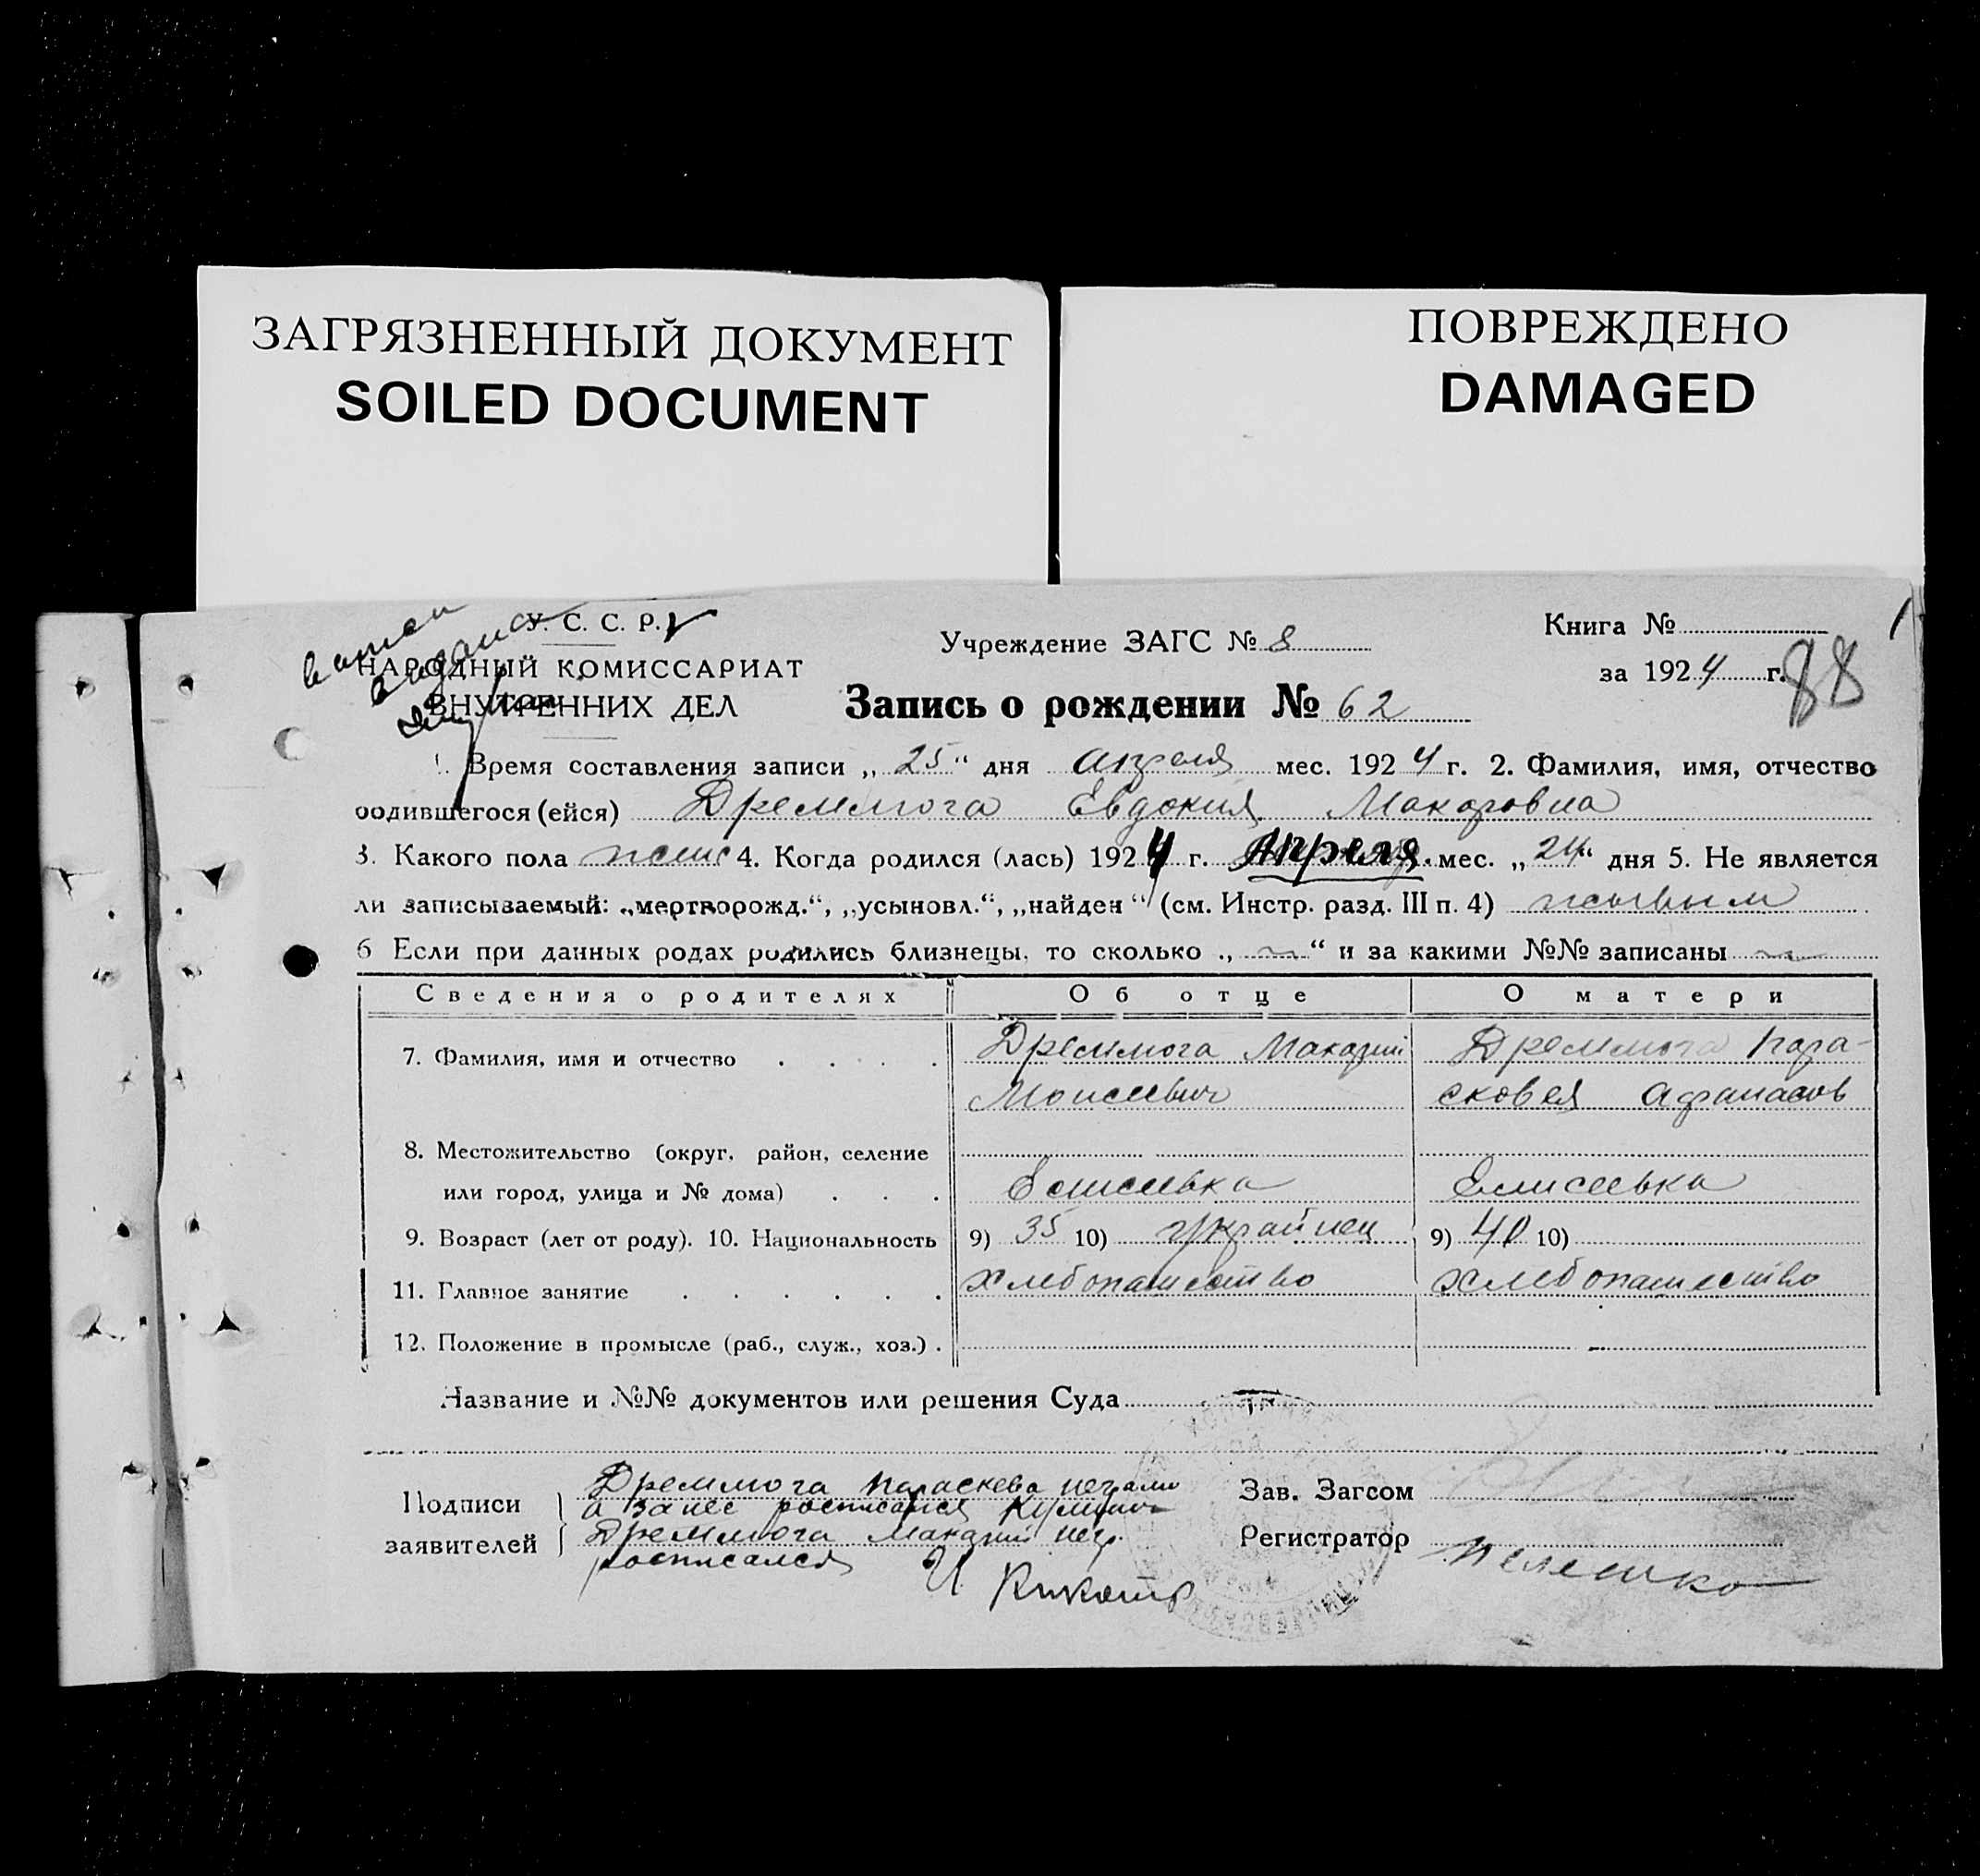 ЗАГРЯЗНЕННЫЙ ДОКУМЕНТ
SOILED DOCUMENT
ПОВРЕЖДЕНО
DAMAGED
У. С. С. Р.
НАРОДНЫЙ КОМИССАРИАТ
ВНУТРЕННИХ ДЕЛ
Учреждение ЗАГС № 8
Книга №
за 1924 г.
88
Запись о рождении № 62
1. Время составления записи „25“ дня апреля мес. 1924 г. 2. Фамилия, имя, отчество
родившегося (ейся) Дремлюга Евдокия Макаровна
3. Какого пола женс 4. Когда родился (лась) 1924 г. Апреля мес. „24“ дня 5. Не является
ли записываемый: „мертворожд.“, „усыновл.“, „найден“ (см. Инстр. разд. III п. 4) живым
6 Если при данных родах родились близнецы, то сколько „ — “ и за какими №№ записаны —
Сведения о родителях Об отце О матери
7. Фамилия, имя и отчество Дремлюга Макарий Дремлюга Пара-
Моисеевич сковея Афанасов
8. Местожительство (округ, район, селение
или город, улица и № дома) Елисеевка Елисеевка
9. Возраст (лет от роду). 10. Национальность 9) 35 10) украинец 9) 40 10)
11. Главное занятие хлебопашество хлебопашество
12. Положение в промысле (раб., служ., хоз.)
Название и №№ документов или решения Суда
Подписи
заявителей
Дремлюга Параскева неграмо
а за нее росписался
Дремлюга Макарий негр.
росписался
Зав. Загсом
Регистратор